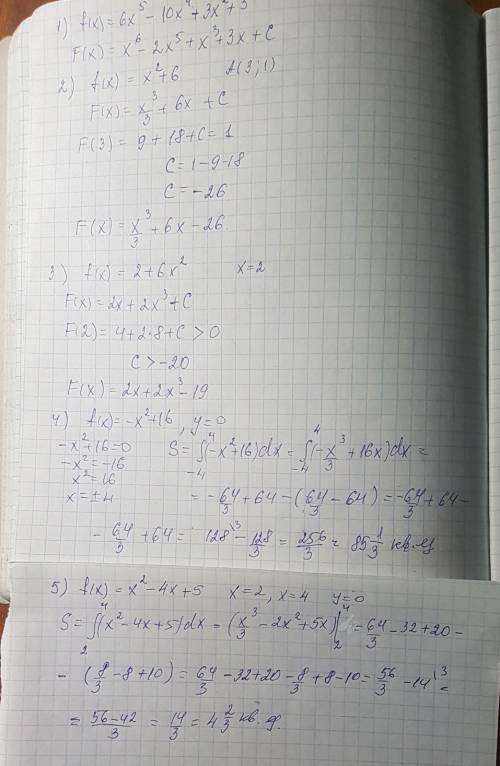 1) f(x) = 6x⁵ - 10x⁴ + 3x² + 3
F(x) = x⁶ - 2x⁵ + x³ + 3x + C
2) f(x) = x² + 6 A(3; 1)
F(x) = x³/3 + 6x + C
F(3) = 9 + 18 + C = 1
C = 1 - 9 - 18
C = -26
F(x) = x³/3 + 6x - 26
3) f(x) = 2 + 6x² x = 2
F(x) = 2x + 2x³ + C
F(2) = 4 + 2·8 + C > 0
C > -20
F(x) = 2x + 2x³ - 19
4) f(x) = -x² + 16, y = 0
-x² + 16 = 0 S = ∫₋₄⁴(-x² + 16)dx = ∫₋₄⁴(-x³/3 + 16x)dx =
-x² = -16
x² = 16
x = ±4 = -64/3 + 64 - (64/3 - 64) = -64/3 + 64 -
- 64/3 + 64 = 128\³ - 128/3 = 256/3 = 85 1/3 кв.ед
5) f(x) = x² - 4x + 5 x = 2, x = 4 y = 0
S = ∫₂⁴(x² - 4x + 5)dx = (x³/3 - 2x² + 5x)|₂⁴ = 64/3 - 32 + 20 -
- (8/3 - 8 + 10) = 64/3 - 32 + 20 - 8/3 + 8 - 10 = 56/3 - 14\³ =
= 56-42/3 = 14/3 = 4 2/3 кв. ед.